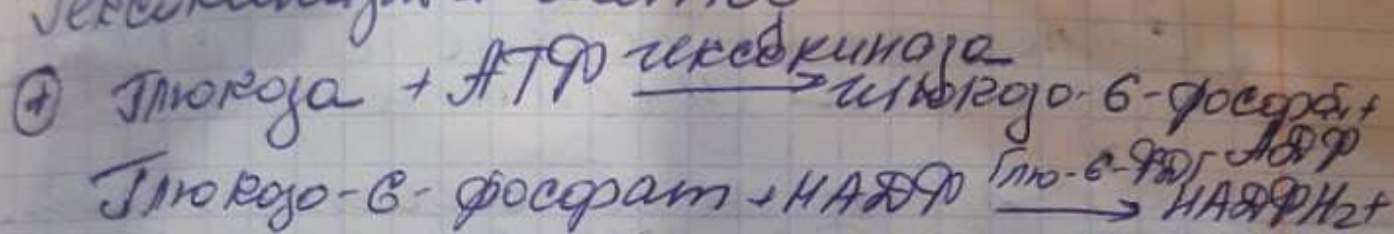 + Глюкоза + АТФ гексокиназа → глюкозо-6-фосфат + АДФ
Глюкозо-6-фосфат + НАДФ Глю-6-ФДГ → НАДФН2 +